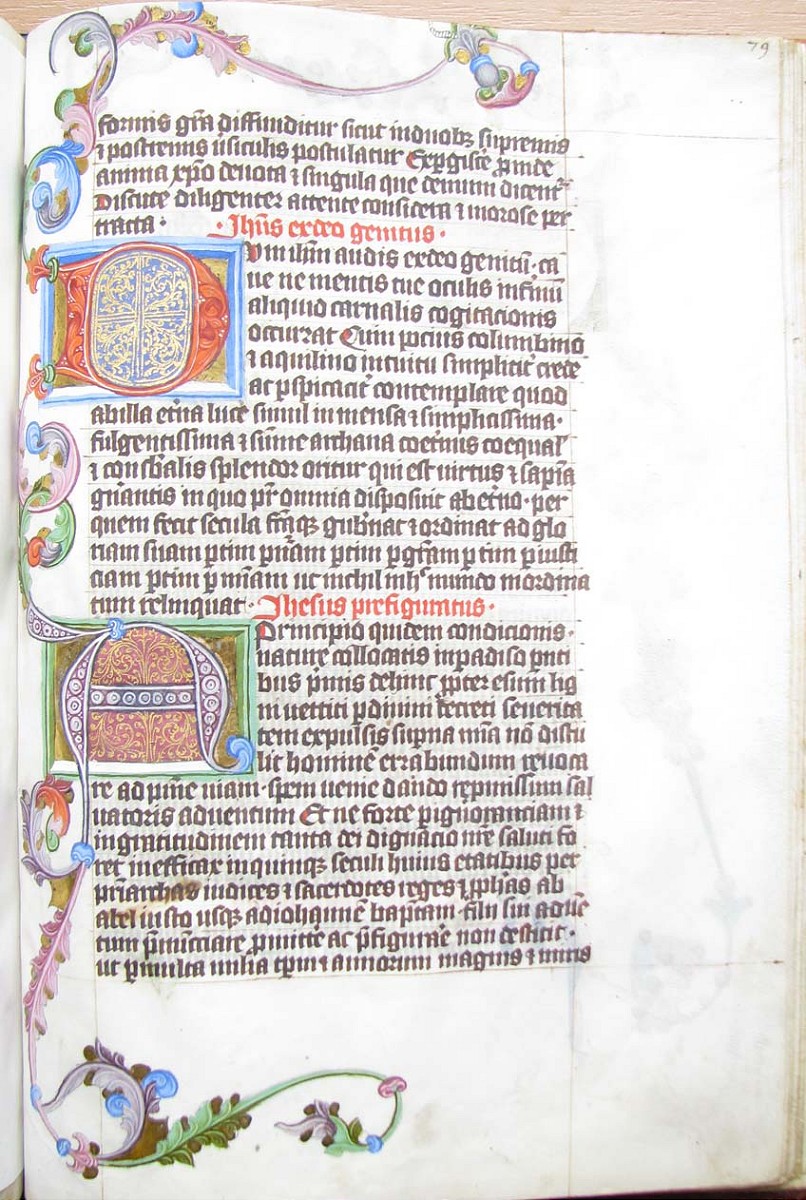 79
formis gr̄a diffunditur sicut in duobꝫ supremis
⁊ postremis v̄siculis postulatur Expgisce ꝓinde
anima xp̄o deuota ⁊ singula que de ihu dicent᷑
Discute diligenter attente considera ⁊ morose per
tracta · · Ihūs ex deo genitus ·
Cum ihm̄ audis ex deo genitū · ca
ue ne mentis tue oculis infimū
aliquid carnalis cogitacionis
occurrat Quin pocius columbino
⁊ aquilino intuitu simplicit᷑ crede
ac pspicacit᷑ contemplare quod
ab illa et̄na luce simul inmensa ⁊ simplicissima ·
fulgentissima ⁊ sūme archana coet̄nus coequal᷑
⁊ consb̄alis splendor oritur qui est virtus ⁊ sapīa
gn̄antis in quo pr̄ omnia disposuit ab et̄no · per
quem fecit secula f̄caqꝫ gub̄nat ⁊ ordinat ad glo
riam suam ptim p nām ptim p gr̄am ptim p iusti
ciam ptim p miām ut nichil in hͦ mundo inordina
tum relinquat · Ihesus prefiguratus ·
A principio quidem condicionis ·
nature collocatis in padiso pnti
bus p̄mis deliut ppter esum lig
ni uettiti p diuini decreti seuerita
tem expulsis supna mīa nō distu
lit hominē errabundum reuoca
re ad pnīe uiam · spem uenie dando repmissum sal
uatoris aduentum Et ne forte p ignoranciam ⁊
ingratitudinem tanta dei dignacio nr̄e saluti fo
ret inefficax in quinqꝫ seculi huius etatibus per
pr̄iarchas iudices ⁊ sacerdotes reges ⁊ ꝓph̄as ab
abel iusto usqꝫ ad ioh̄anne bap̄tam · filii sui aduē
tum p̄nunciare ꝓmitte ac p̄figurare non destitit ·
ut p multa milia tpm ⁊ annorum magnis ⁊ miris